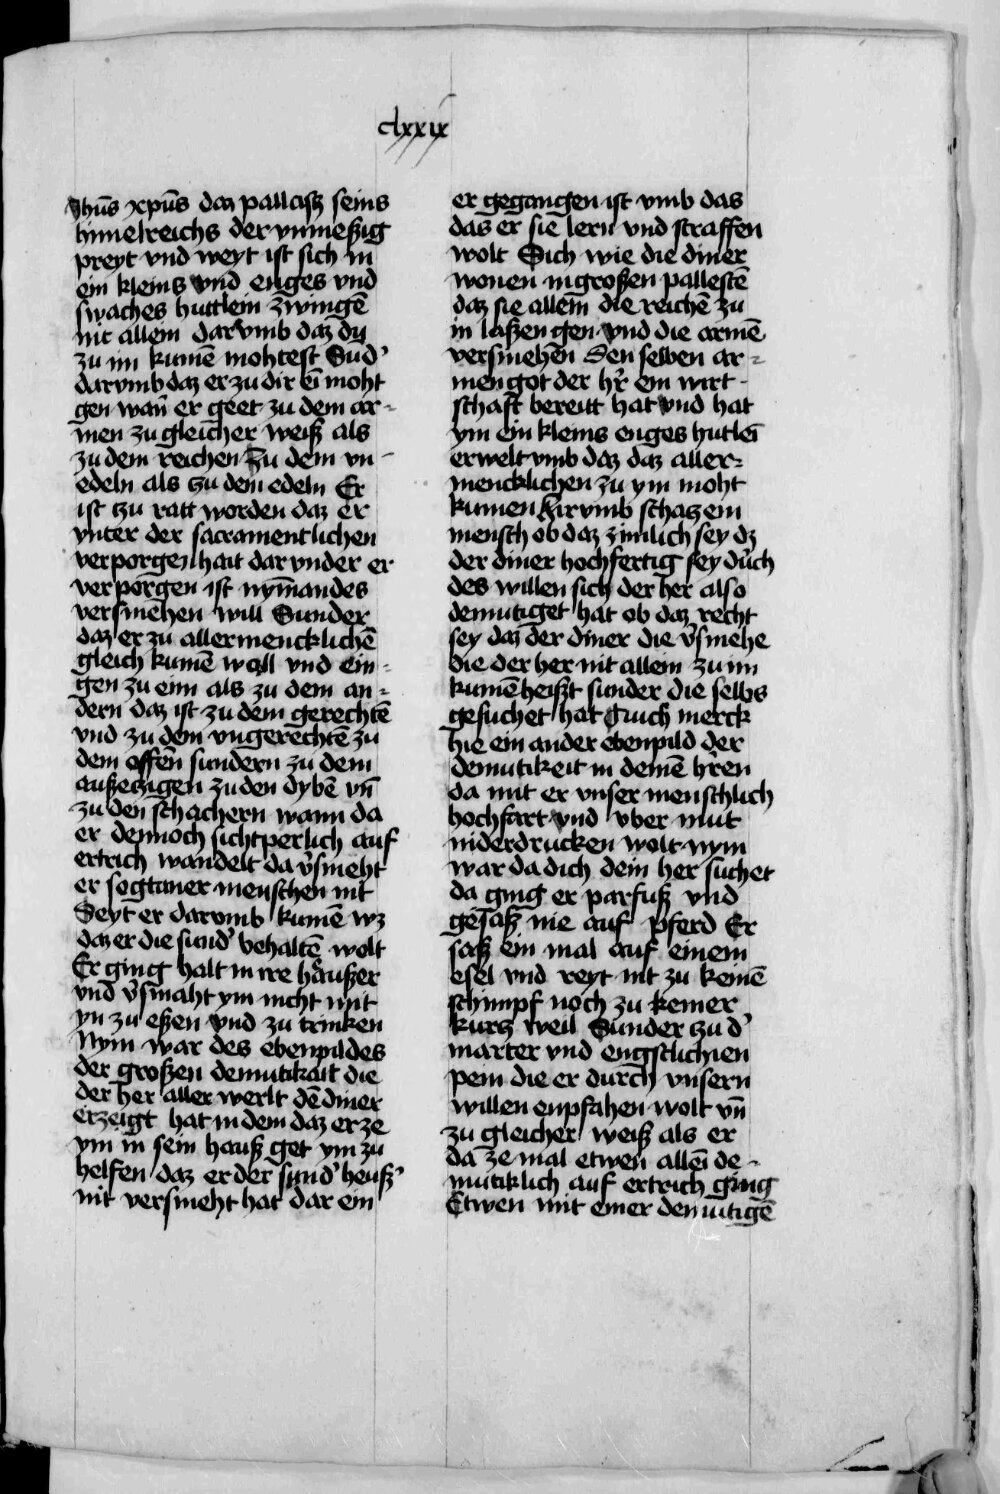 clxxix
Jhūs xpūs daz pallasz seins
himelreichs der vnmeßig
preyt vnd weyt ist sich in
ein kleins vnd enges vnd
swaches huttlein zwingē
nit allein darvmb daz du
zu im kumē mohtest Sud'
darvmb daz er zu dir ei moht
gen wan̄ er geet zu dem ar-
men zu gleicher weiß als
zu dem reichen zu dem vn-
edeln als tzu dem edeln Er
ist tzu ratt worden daz er
vnter der sacramentlichen
verporgenhait dar vnder er
verporgen ist nym̄andes
versmehen will Sunder
daz er zu allermencklichē
gleich kumē woll vnd ein-
gen zu eim als zu dem an-
dern daz ist zu dem gerechtē
vnd zu dem vngerechtē zu
dem offēn sundern zu dem
außeczigen zu den dybē vn̄
zu den schachern wann da
er dennoch sichtperlich auf
ertrich wandelt da v̄smeht
er sogtaner menschen nit
Seyt er darvmb kumē wz
daz er die sund' behaltē wolt
Er ging halt in ire haußer
vnd v̄smaht ym nicht mit
yn zu eßen vnd zu trinken
Nym war des ebenpildes
der großen demutikait die
der her aller werlt dē diner
erzeigt hat in dem daz er ze
ym in sein hauß get ym zu
helfen daz er der sund' heuß'
nit versmeht hat dar ein
er gegangen ist vmb das
das er sie lern vnd straffen
wolt Sich wie die diner
wonen in großen pallestē
daz sie allein die reichē zu
in laßen gen vnd die armē
versmehen Den selben ar-
men got der hr̄ ein wirt-
schaft bereitt hat vnd hat
ym ein kleins enges hutlei
erwelt vmb daz daz aller-
mencklichen zu ym moht
kumen Hirvmb schatz ein
mensch ob daz zimlich sey dz
der diner hochfertig sey durch
des willen sich der her also
demutiget hat ob daz recht
sey daz der diner die v̄smehe
die der her nit allein zu im
kumē heißt sunder die selbs
gesuchet hat Auch merck
hie ein ander ebenpild der
demutikeit in deinē hr̄en
da mit er vnser menschlich
hochfart vnd vber mut
niderdrucken wolt nym
war da dich dein her suchet
da ging er parfuß vnd
gesaß nie auf pferd Er
saß ein mal auf einem
esel vnd reyt nit zu keinē
schimpf noch zu keiner
kurtz weil Sunder tzu d'
marter vnd engstlichen
pein die er durch vnsern
willen enpfahen wolt vn̄
zu gleicher weiß als er
da ze mal etwen allei de-
mutiklich auf ertrich ging
Etwen mit einer demutigē